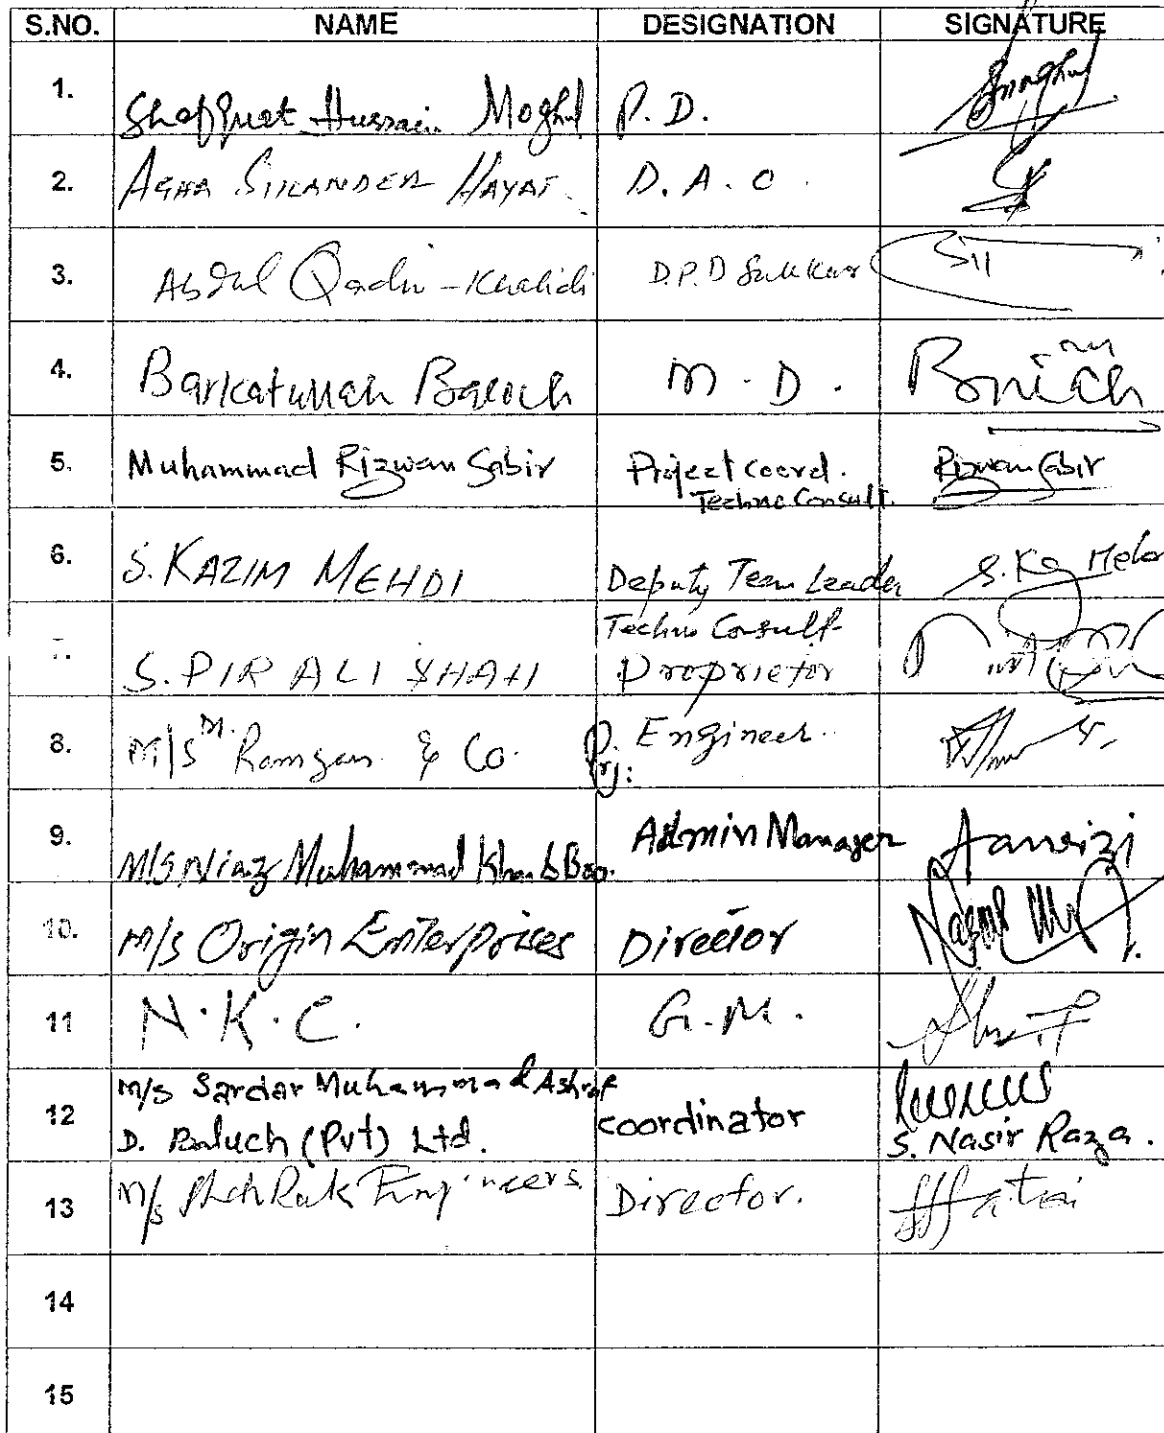 S.NO. NAME DESIGNATION SIGNATURE
1. Shafquat Hussain Moghul P.D.
2. AGHA SIKANDER HAYAT. D.A.O.
3. Abdul Qadir - Khalidi D.P.D Sukkur
4. Barkatullah Baloch M.D.
5. Muhammad Rizwan Sabir Project Coord. Rizwan Sabir
Techno Consult.
6. S. KAZIM MEHDI Deputy Team Leader
Techno Consult
7. S. PIR ALI SHAH Proprietor
8. M/S M. Ramzan & Co. Engineer.
Prj:
9. M/S Niaz Muhammad Khan & Bro. Admin Manager
10. M/s Origin Enterprises Director
11 N.K.C. G.M.
12 M/s Sardar Muhammad Ashraf coordinator
D. Baluch (Pvt) Ltd. S. Nasir Raza.
13 M/s Engineers Director.
14
15